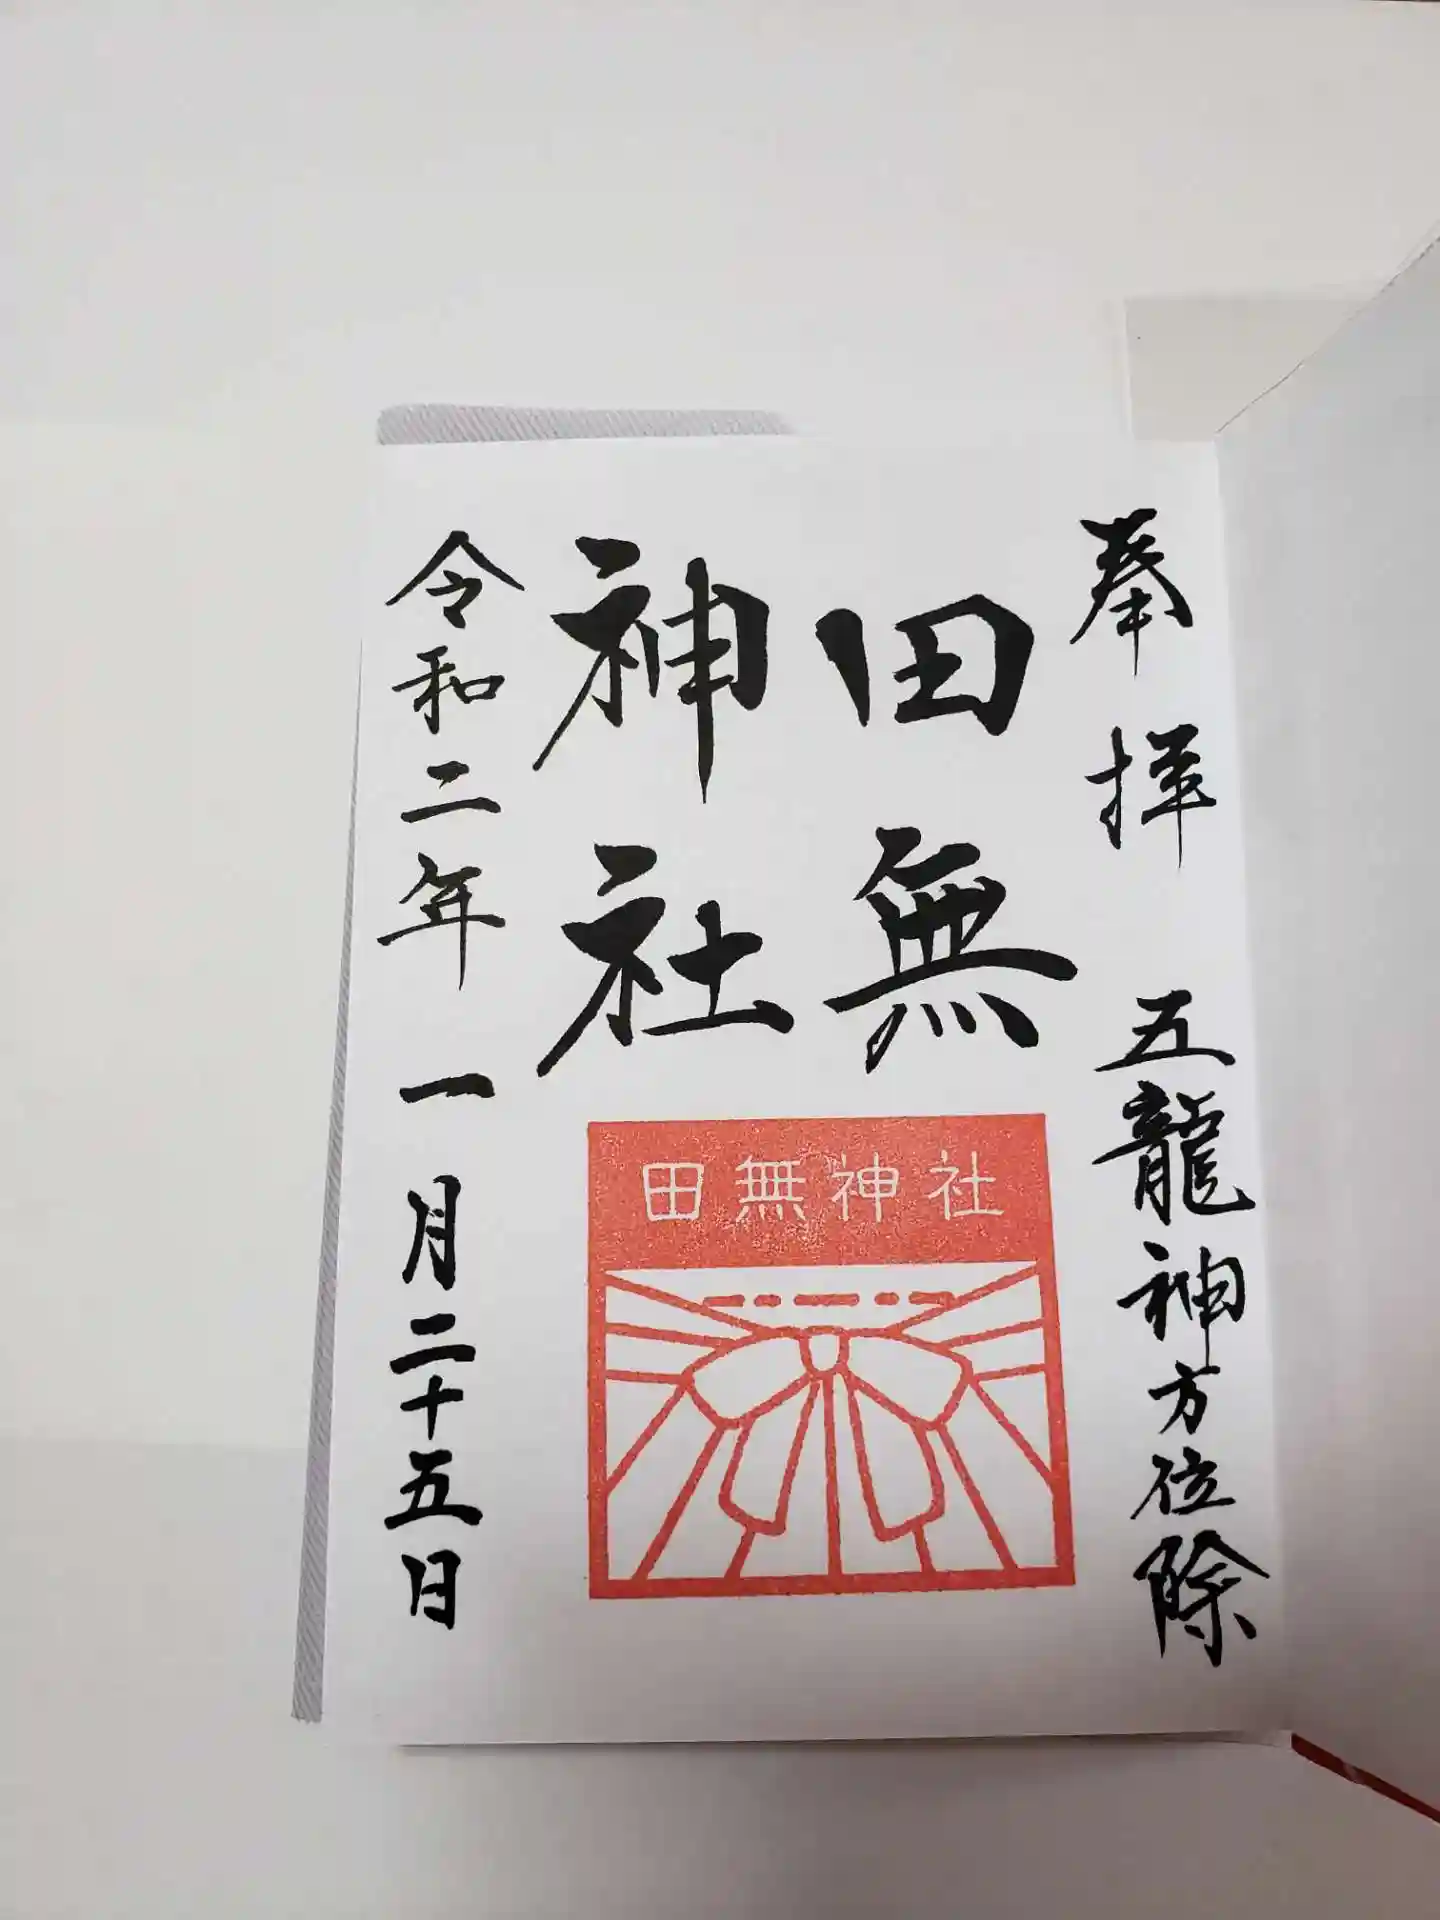 奉拝　五龍神方位除
田無
神社
田無神社
令和二年一月二十五日